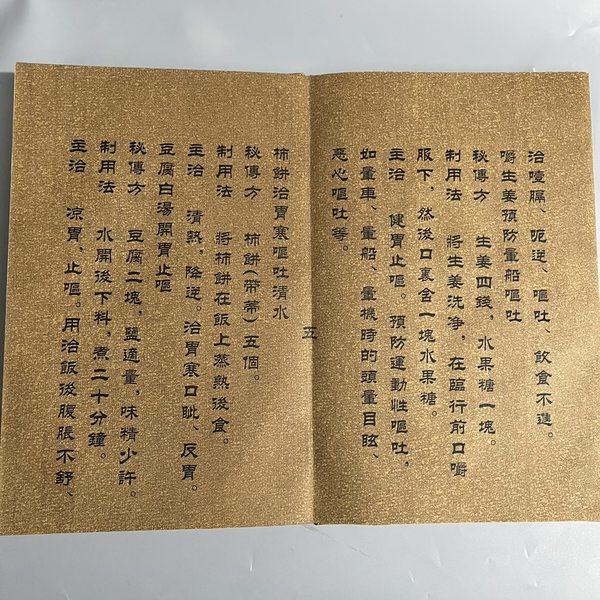 治噎膈、呃逆、嘔吐、飲食不進。
嚼生姜預防暈船嘔吐
秘傳方 生姜四錢，水果糖一塊。
制用法 將生姜洗净，在臨行前口嚼
服下，然後口裏含一塊水果糖。
主治 健胃止嘔。預防運動性嘔吐，
如暈車、暈船、暈機時的頭暈目眩、
惡心嘔吐等。
五
柿餅治胃寒嘔吐清水
秘傳方 柿餅(帶蒂)五個。
制用法 將柿餅在飯上蒸熟後食。
主治 清熱，降逆。治胃寒口吡、反胃。
豆腐白湯開胃止嘔
秘傳方 豆腐二塊，鹽適量，味精少許。
制用法 水開後下料，煮二十分鐘。
主治 凉胃、止嘔。用治飯後腹脹不舒、